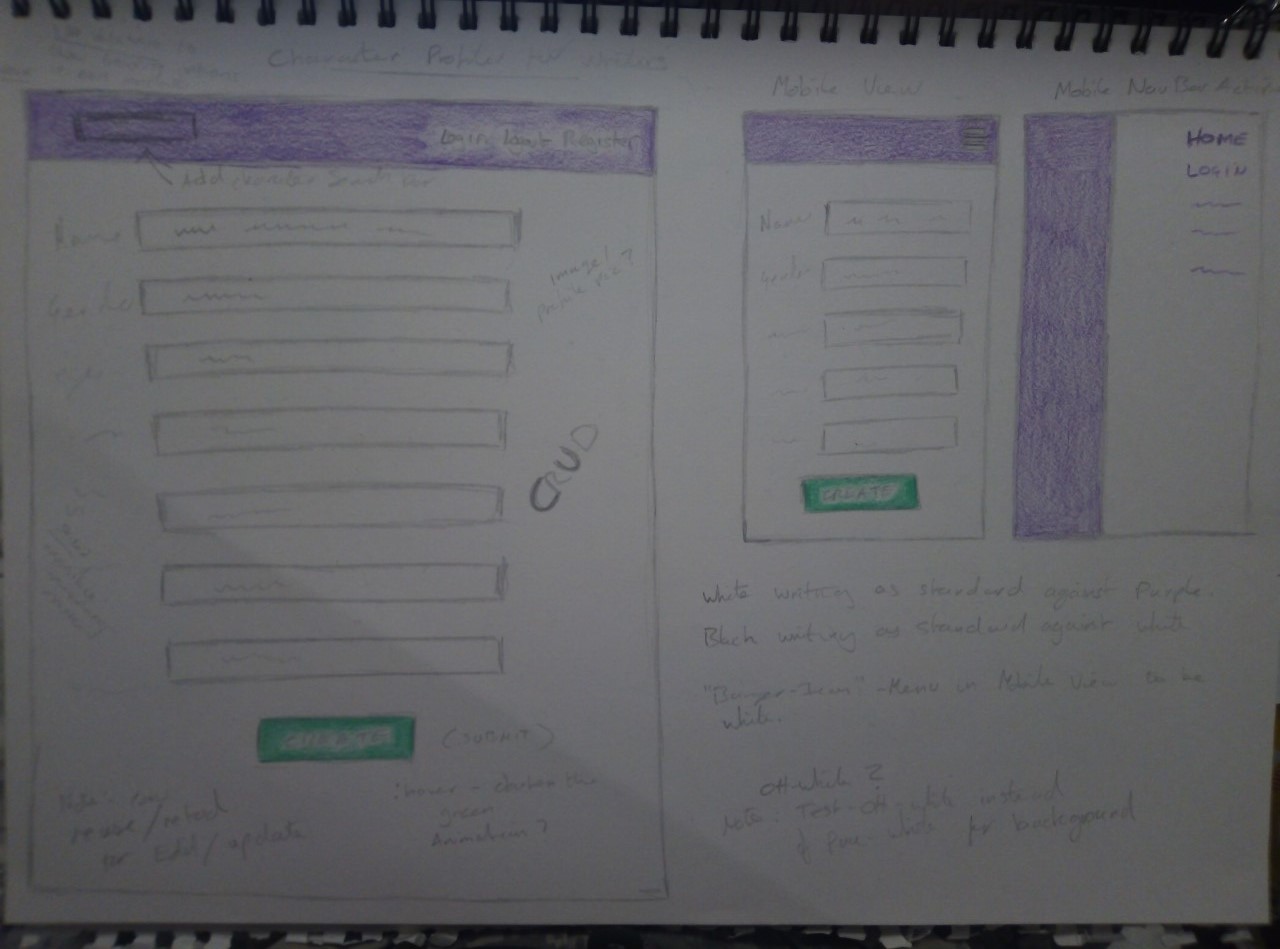 Character Profiler for Writers
Login Logout Register
Add character Search bar
Name
Gender
Age
Image?
Profile pic?
CRUD
CREATE
(SUBMIT)
Note:- can
reuse/reload
for Edit/update
:hover - darken the
green
Animation?
Mobile View
Name
Gender
CREATE
Mobile NavBar Active
HOME
LOGIN
White writing as standard against Purple.
Black writing as standard against white
"Burger-Icon" - Menu in Mobile View to be
white.
Off-white?
Note: Test-Off-white instead
of pure white for background